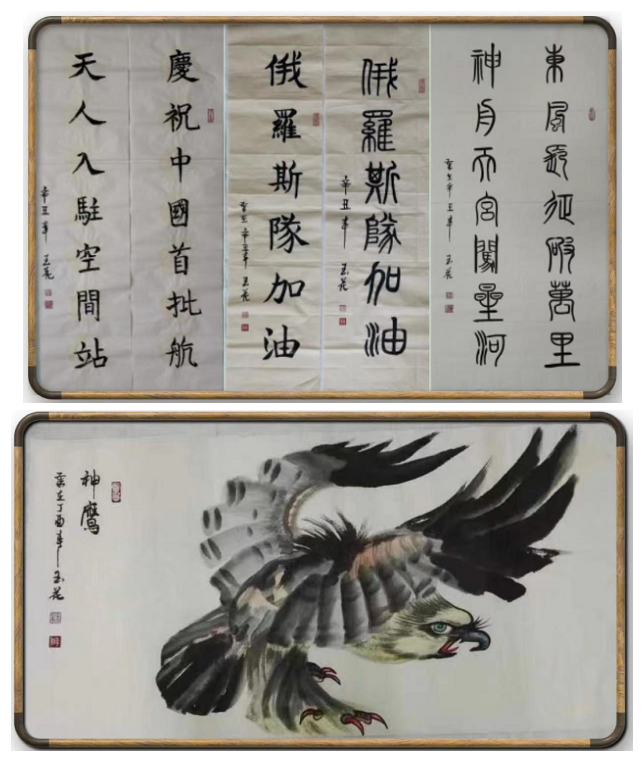 東風征破萬里
神舟天宮闖星河
歲在辛丑年 玉花
俄羅斯隊加油
辛丑年 玉花
俄羅斯隊加油
歲在辛丑年 玉花
慶祝中國首批航
天人入駐空間站
辛丑年 玉花
神鷹
歲在丁酉年 玉花